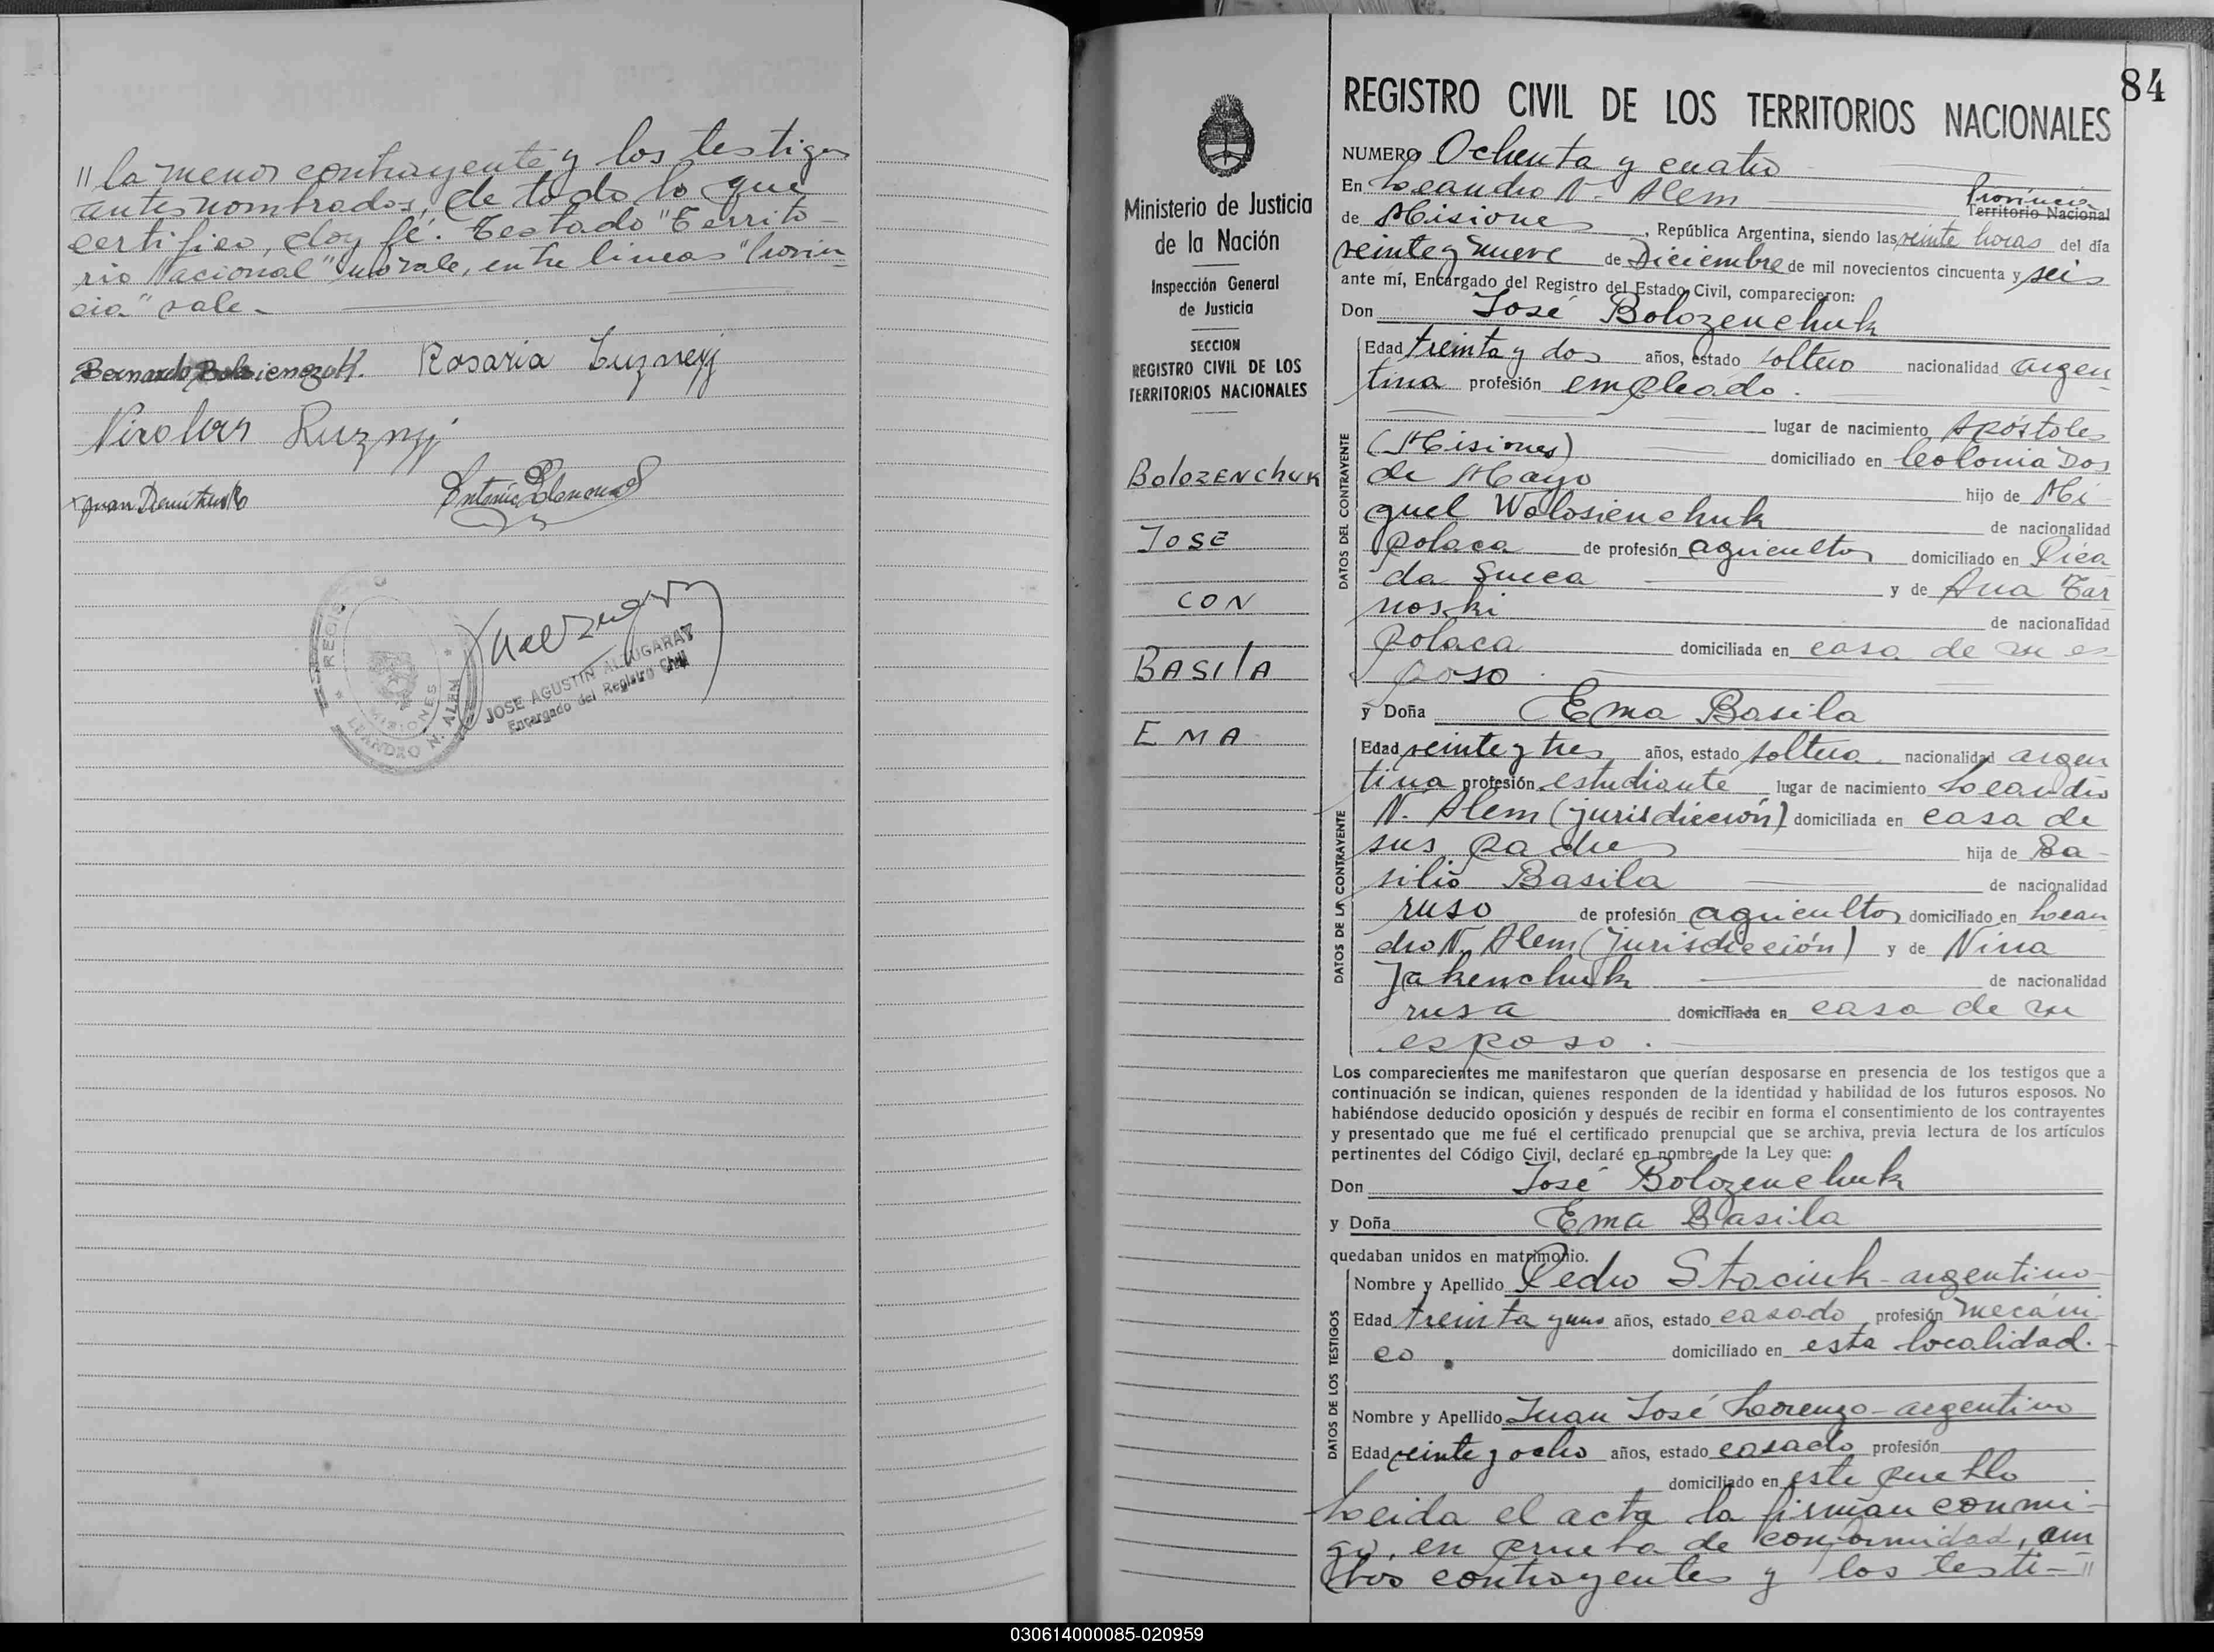 "la menor contrayente y los testigos
antes nombrados, de todo lo que
certifico, doy fé. Testado "Territo-
rio Nacional" no vale, entre lineas "Provin-
cia" vale.-
Rosaria
Juan
REGIS
MISIONES
LEANDRO N. ALEM
JOSE AGUSTIN ALZUGARAY
Encargado del Registro Civil
84
Ministerio de Justicia
de la Nación
Inspección General
de Justicia
SECCION
REGISTRO CIVIL DE LOS
TERRITORIOS NACIONALES
BOLOZENCHUK
JOSE
CON
BASILA
EMA
REGISTRO CIVIL DE LOS TERRITORIOS NACIONALES
NUMERO Ochenta y cuatro
En Leandro N. Alem Provincia
Territorio Nacional
de Misiones, República Argentina, siendo las veinte horas del día
veinte y nueve de Diciembre de mil novecientos cincuenta y seis
ante mí, Encargado del Registro del Estado Civil, comparecieron:
Don José Bolozenchuk
DATOS DEL CONTRAYENTE
Edad treinta y dos años, estado soltero nacionalidad argen-
tina profesión empleado.
lugar de nacimiento Apóstoles
(Misiones) domiciliado en Colonia Dos
de Mayo hijo de Mi-
guel Wolosienchuk de nacionalidad
polaca de profesión agricultor domiciliado en Pica
da Sueca y de Ana Tar
noski de nacionalidad
polaca domiciliada en casa de su es-
poso.
y Doña Ema Basila
DATOS DE LA CONTRAYENTE
Edad veinte y tres años, estado soltera nacionalidad argen
tina profesión estudiante lugar de nacimiento Leandro
N. Alem (jurisdicción) domiciliada en casa de
sus padres hija de Ba-
silio Basila de nacionalidad
ruso de profesión agricultor domiciliado en Lean
dro N. Alem (jurisdicción) y de Nina
Jakenchuk de nacionalidad
rusa domiciliada en casa de su
esposo.
Los comparecientes me manifestaron que querían desposarse en presencia de los testigos que a
continuación se indican, quienes responden de la identidad y habilidad de los futuros esposos. No
habiéndose deducido oposición y después de recibir en forma el consentimiento de los contrayentes
y presentado que me fué el certificado prenupcial que se archiva, previa lectura de los artículos
pertinentes del Código Civil, declaré en nombre de la Ley que:
Don José Bolozenchuk
y Doña Ema Basila
quedaban unidos en matrimonio.
DATOS DE LOS TESTIGOS
Nombre y Apellido Pedro Staciuk - argentino
Edad treinta y uno años, estado casado profesión mecáni-
co. domiciliado en esta localidad.-
Nombre y Apellido Juan José Lorenzo - argentino
Edad veinte y ocho años, estado casado profesión
domiciliado en este pueblo
Leida el acta la firman conmi-
go, en prueba de conformidad, am
bos contrayentes y los testi-"
030614000085-020959